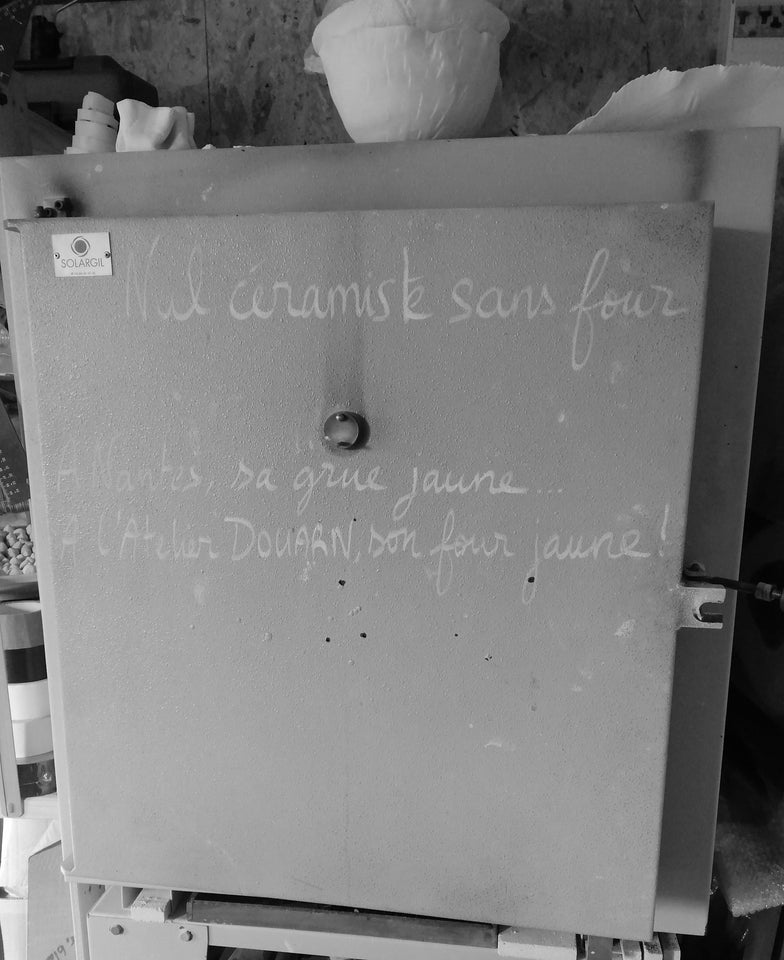 SOLARGIL
Nul céramiste sans four
A Nantes, sa grue jaune...
A l'Atelier DOUARN, son four jaune!